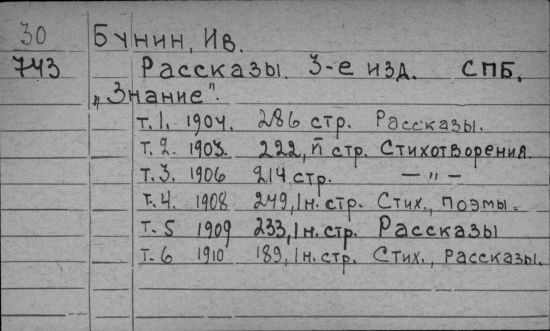 30 Бунин, Ив.
743 Рассказы. 3-е изд. СПБ.
„Знание".
т.1. 1904. 286 стр. Рассказы.
т.2. 1903. 222, II стр. Стихотворения.
т.3. 1906 214 стр. — „ —
т.4. 1908 249, 1н. стр. Стих., поэмы.
т.5 1909 233, 1н. стр. Рассказы
т.6 1910 189, 1н. стр. Стих., Рассказы.